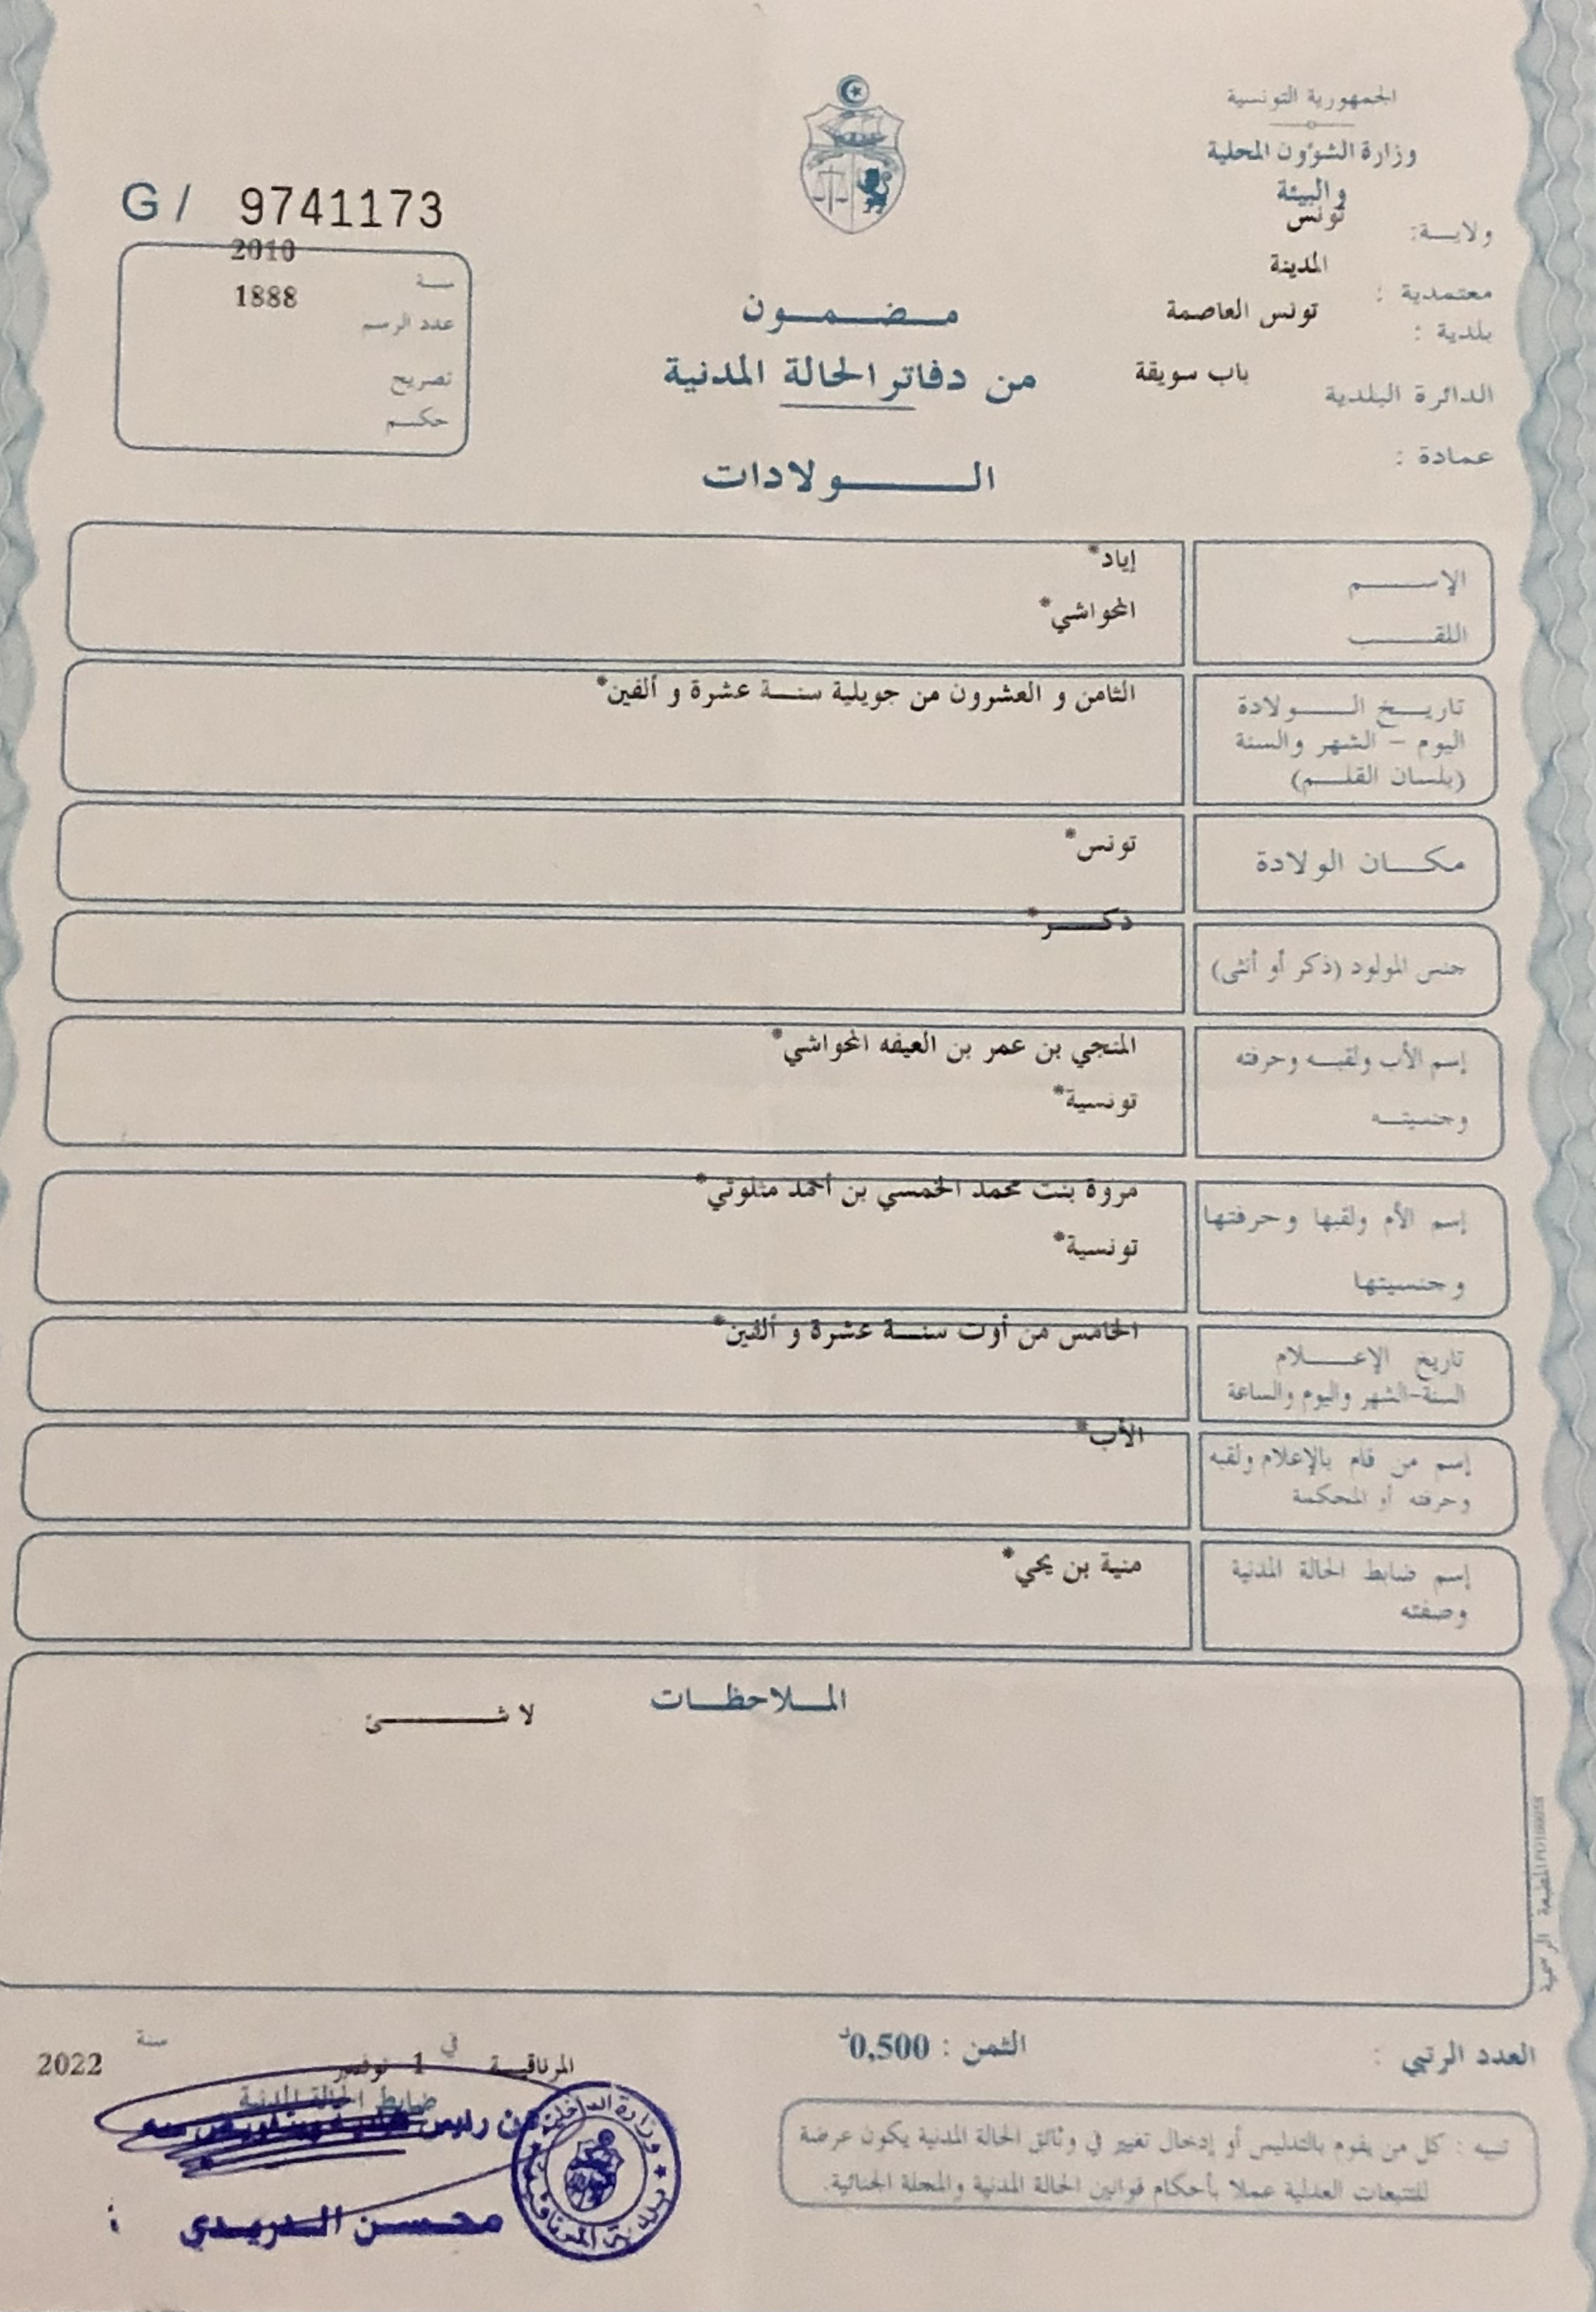 الجمهورية التونسية
وزارة الشؤون المحلية
والبيئة
ولايــة: تونس
معتمدية : المدينة
بلدية : تونس العاصمة
الدائرة البلدية باب سويقة
عمادة :
G / 9741173
سنة 2010
عدد الرسم 1888
تصريح
حكم
مضمون
من دفاتر الحالة المدنية
الولادات
الإسم إياد*
اللقب المحواشي*
تاريخ الولادة الثامن و العشرون من جويلية سنة عشرة و ألفين*
اليوم - الشهر والسنة
(بلسان القلم)
مكان الولادة تونس*
جنس المولود (ذكر أو أنثى) ذكر*
إسم الأب ولقبه وحرفته المنجي بن عمر بن العيفه المحواشي*
وجنسيته تونسية*
إسم الأم ولقبها وحرفتها مروة بنت محمد الخمسي بن أحمد مثلوثي*
وجنسيتها تونسية*
تاريخ الإعلام الخامس من أوت سنة عشرة و ألفين*
السنة-الشهر واليوم والساعة
إسم من قام بالإعلام ولقبه الأب*
وحرفته أو المحكمة
إسم ضابط الحالة المدنية منية بن يحي*
وصفته
الملاحظات
لا شئ
المطبعة الرسمية
العدد الرتبي :
الثمن : 0,500د
المرناقية في 1 نوفمبر سنة 2022
ضابط الحالة المدنية
عن رئيس
محسن الدريدي
وزارة الداخلية
بلدية المرناقية
تنبيه : كل من يقوم بالتدليس أو إدخال تغيير في وثائق الحالة المدنية يكون عرضة
للتتبعات العدلية عملا بأحكام قوانين الحالة المدنية والمجلة الجنائية.